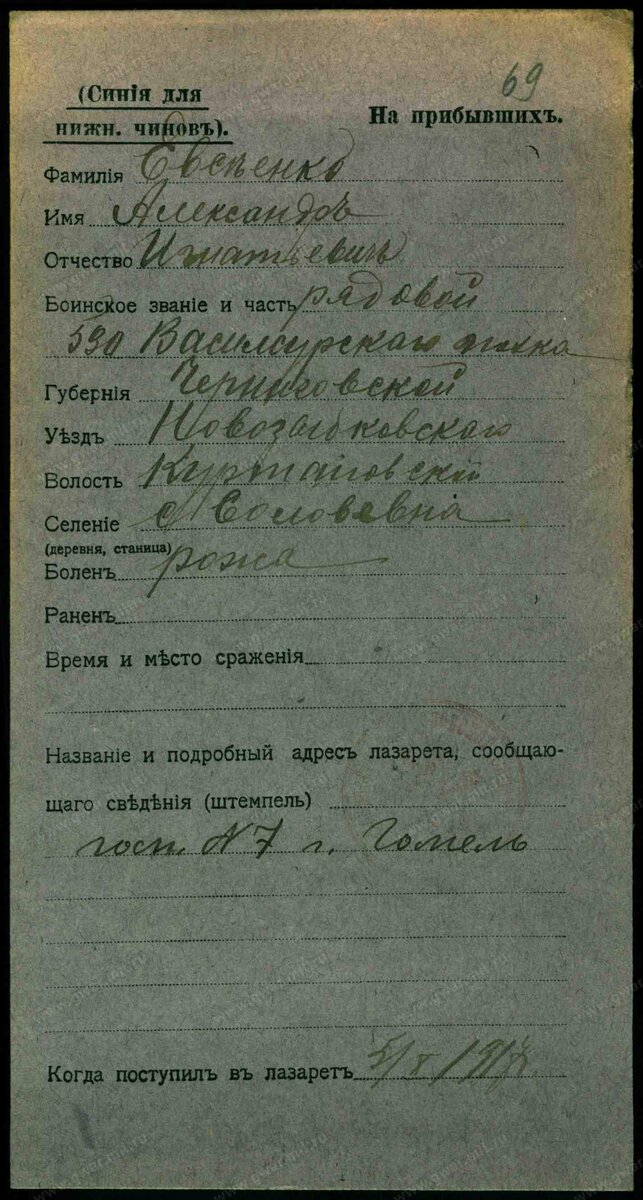 69
(Синія для
нижн. чиновъ).
На прибывшихъ.
Фамилія Евсѣенко
Имя Александръ
Отчество Игнатьевичъ
Воинское званіе и часть рядовой
530 Васильсурского полка
Губернія Черниговской
Уѣздъ Новозыбковского
Волость
Селеніе с Соловьевка
(деревня, станица)
Боленъ рожа
Раненъ
Время и мѣсто сраженія
Названіе и подробный адресъ лазарета, сообщаю-
щаго свѣдѣнія (штемпель)
госп. N7 г. Гомель
Когда поступилъ въ лазаретъ 5/X 1917